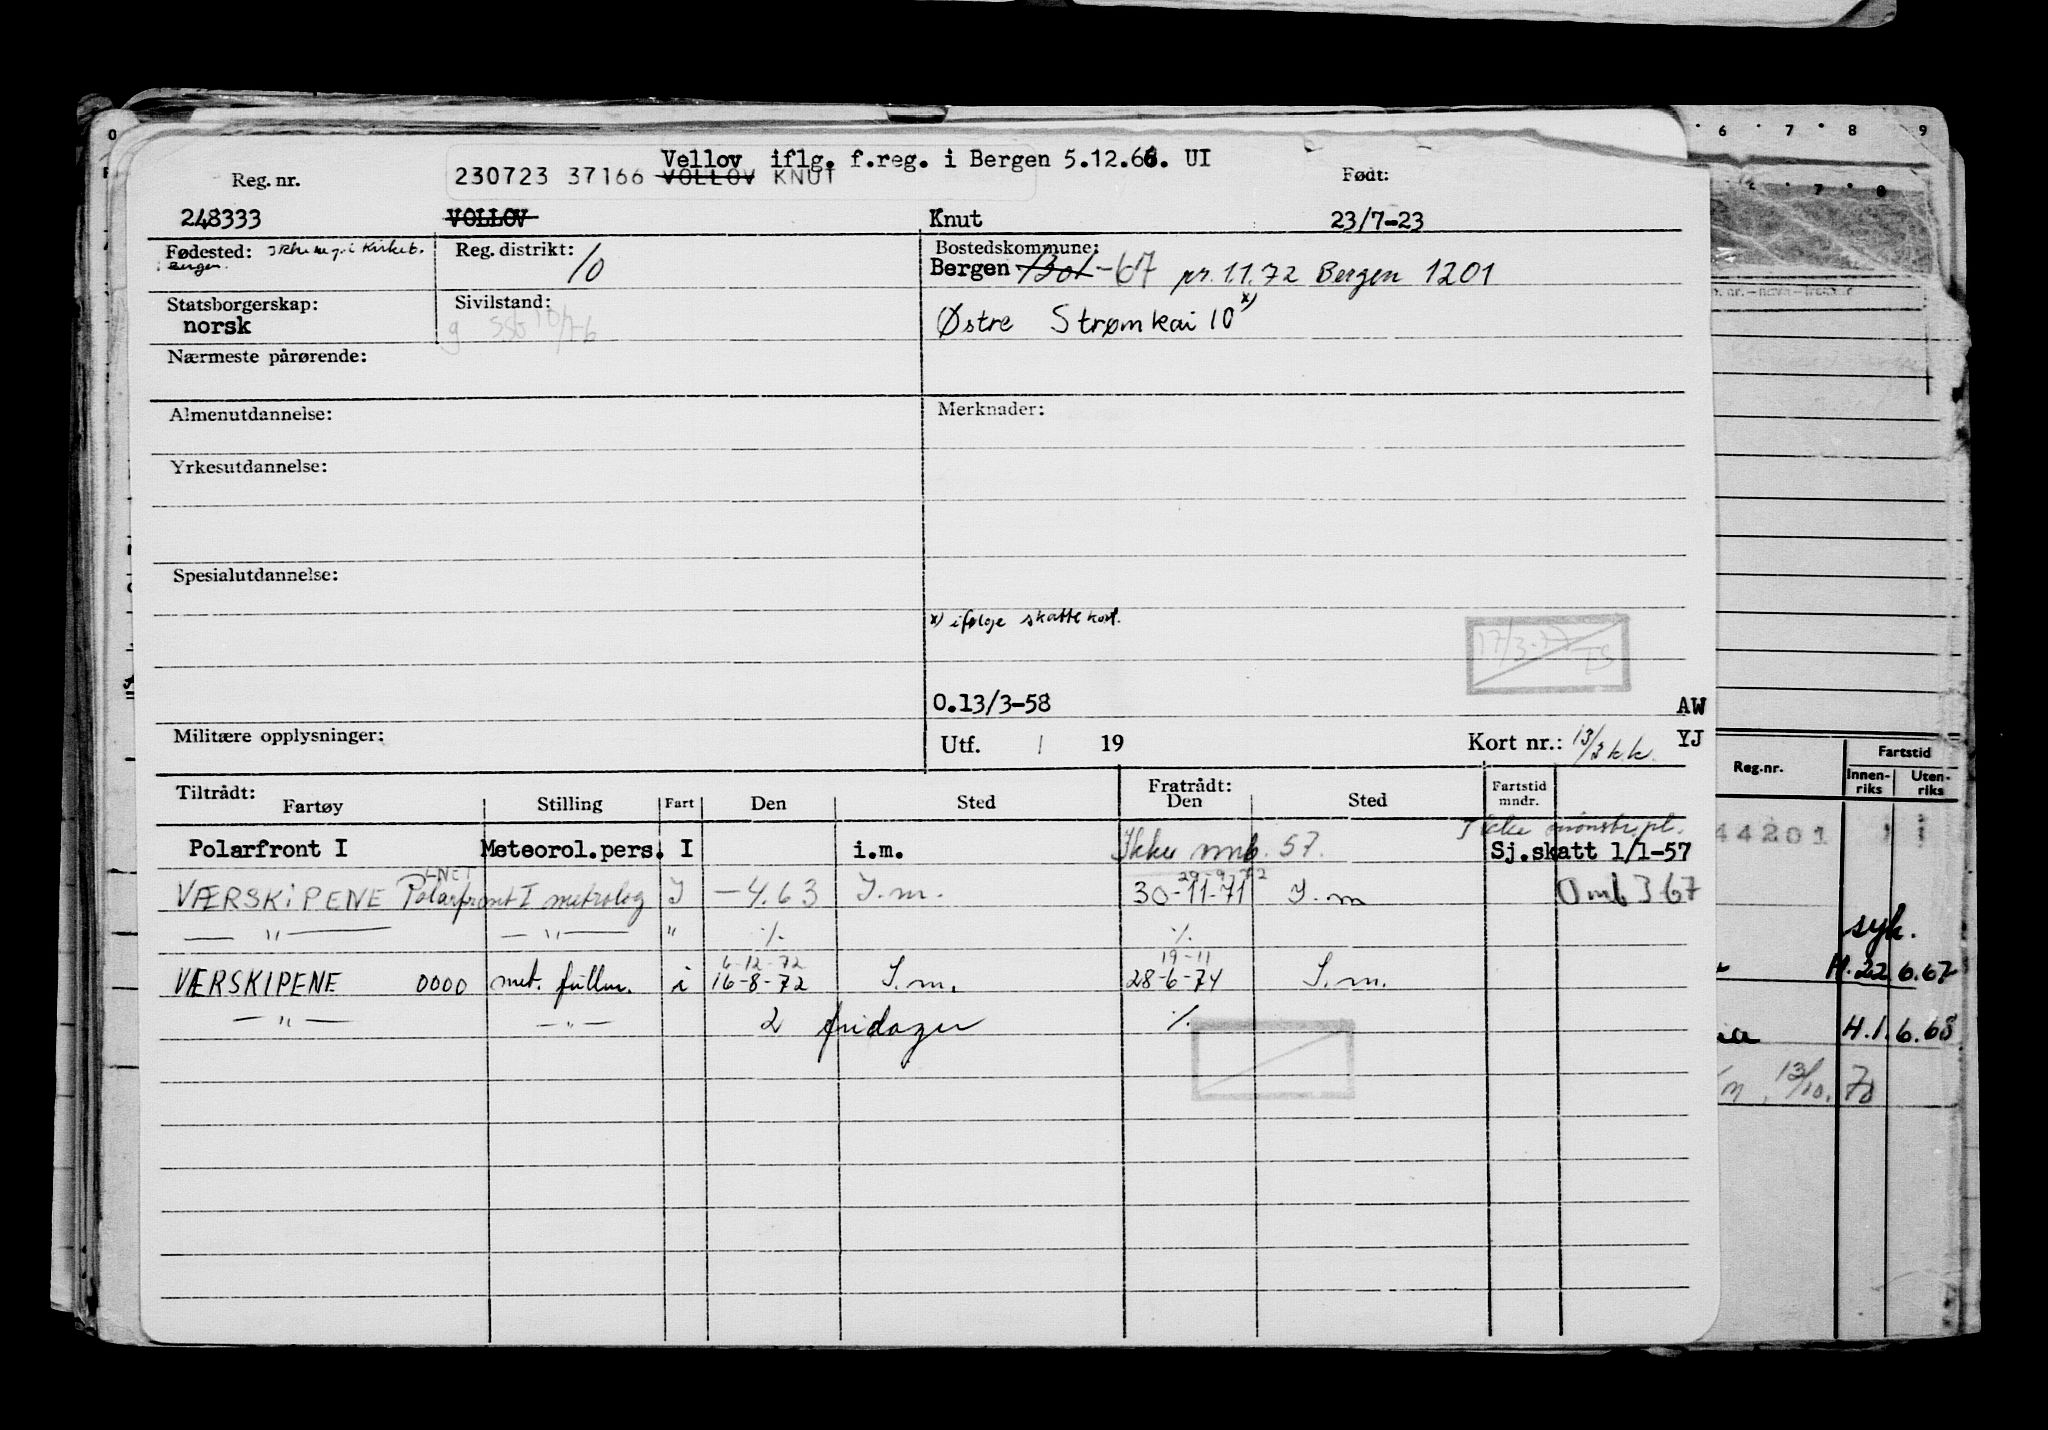 Vellov iflg. f.reg. i Bergen 5.12.66. UI
Reg. nr. 230723 37166 VOLLOV KNUT Født:
248333 VOLLOV Knut 23/7-23
Fødested: Ikke reg. i Kirkeb. Reg. distrikt: 10 Bostedskommune:
Bergen. Bergen -67 pr. 1.1.72 Bergen 1201
Statsborgerskap: Sivilstand:
norsk g Østre Strømkai 10 x)
Nærmeste pårørende:
Almenutdannelse: Merknader:
Yrkesutdannelse:
Spesialutdannelse:
x) ifølge skattekort.
17/3-77 ES
0.13/3-58 AW
Militære opplysninger: Utf. / 19 Kort nr.: 13/3 k.k. YJ
Tiltrådt: Fratrådt: Fartstid
Fartøy Stilling Fart Den Sted Den Sted mndr.
Ikke mønstr.pl.
Polarfront I Meteorol.pers. I i.m. Ikke mmb. 57. Sj.skatt 1/1-57
LNET 29-9-72
VÆRSKIPENE Polarfront I metrolog I -4.63 I.m. 30-11-71 I.m 0 mb 3 67
— " — — " — " ./. ./.
6-12-72 19-11
VÆRSKIPENE 0000 met. fullm. i 16-8-72 I.m. 28-6-74 I.m.
— " — — " — 2 fridager ./.
6 7 8 9
7 8
Reg.nr. Fartstid
Innen-riks Uten-riks
44201
syk.
H. 22 6.67
H.1.6.68
13/10.70